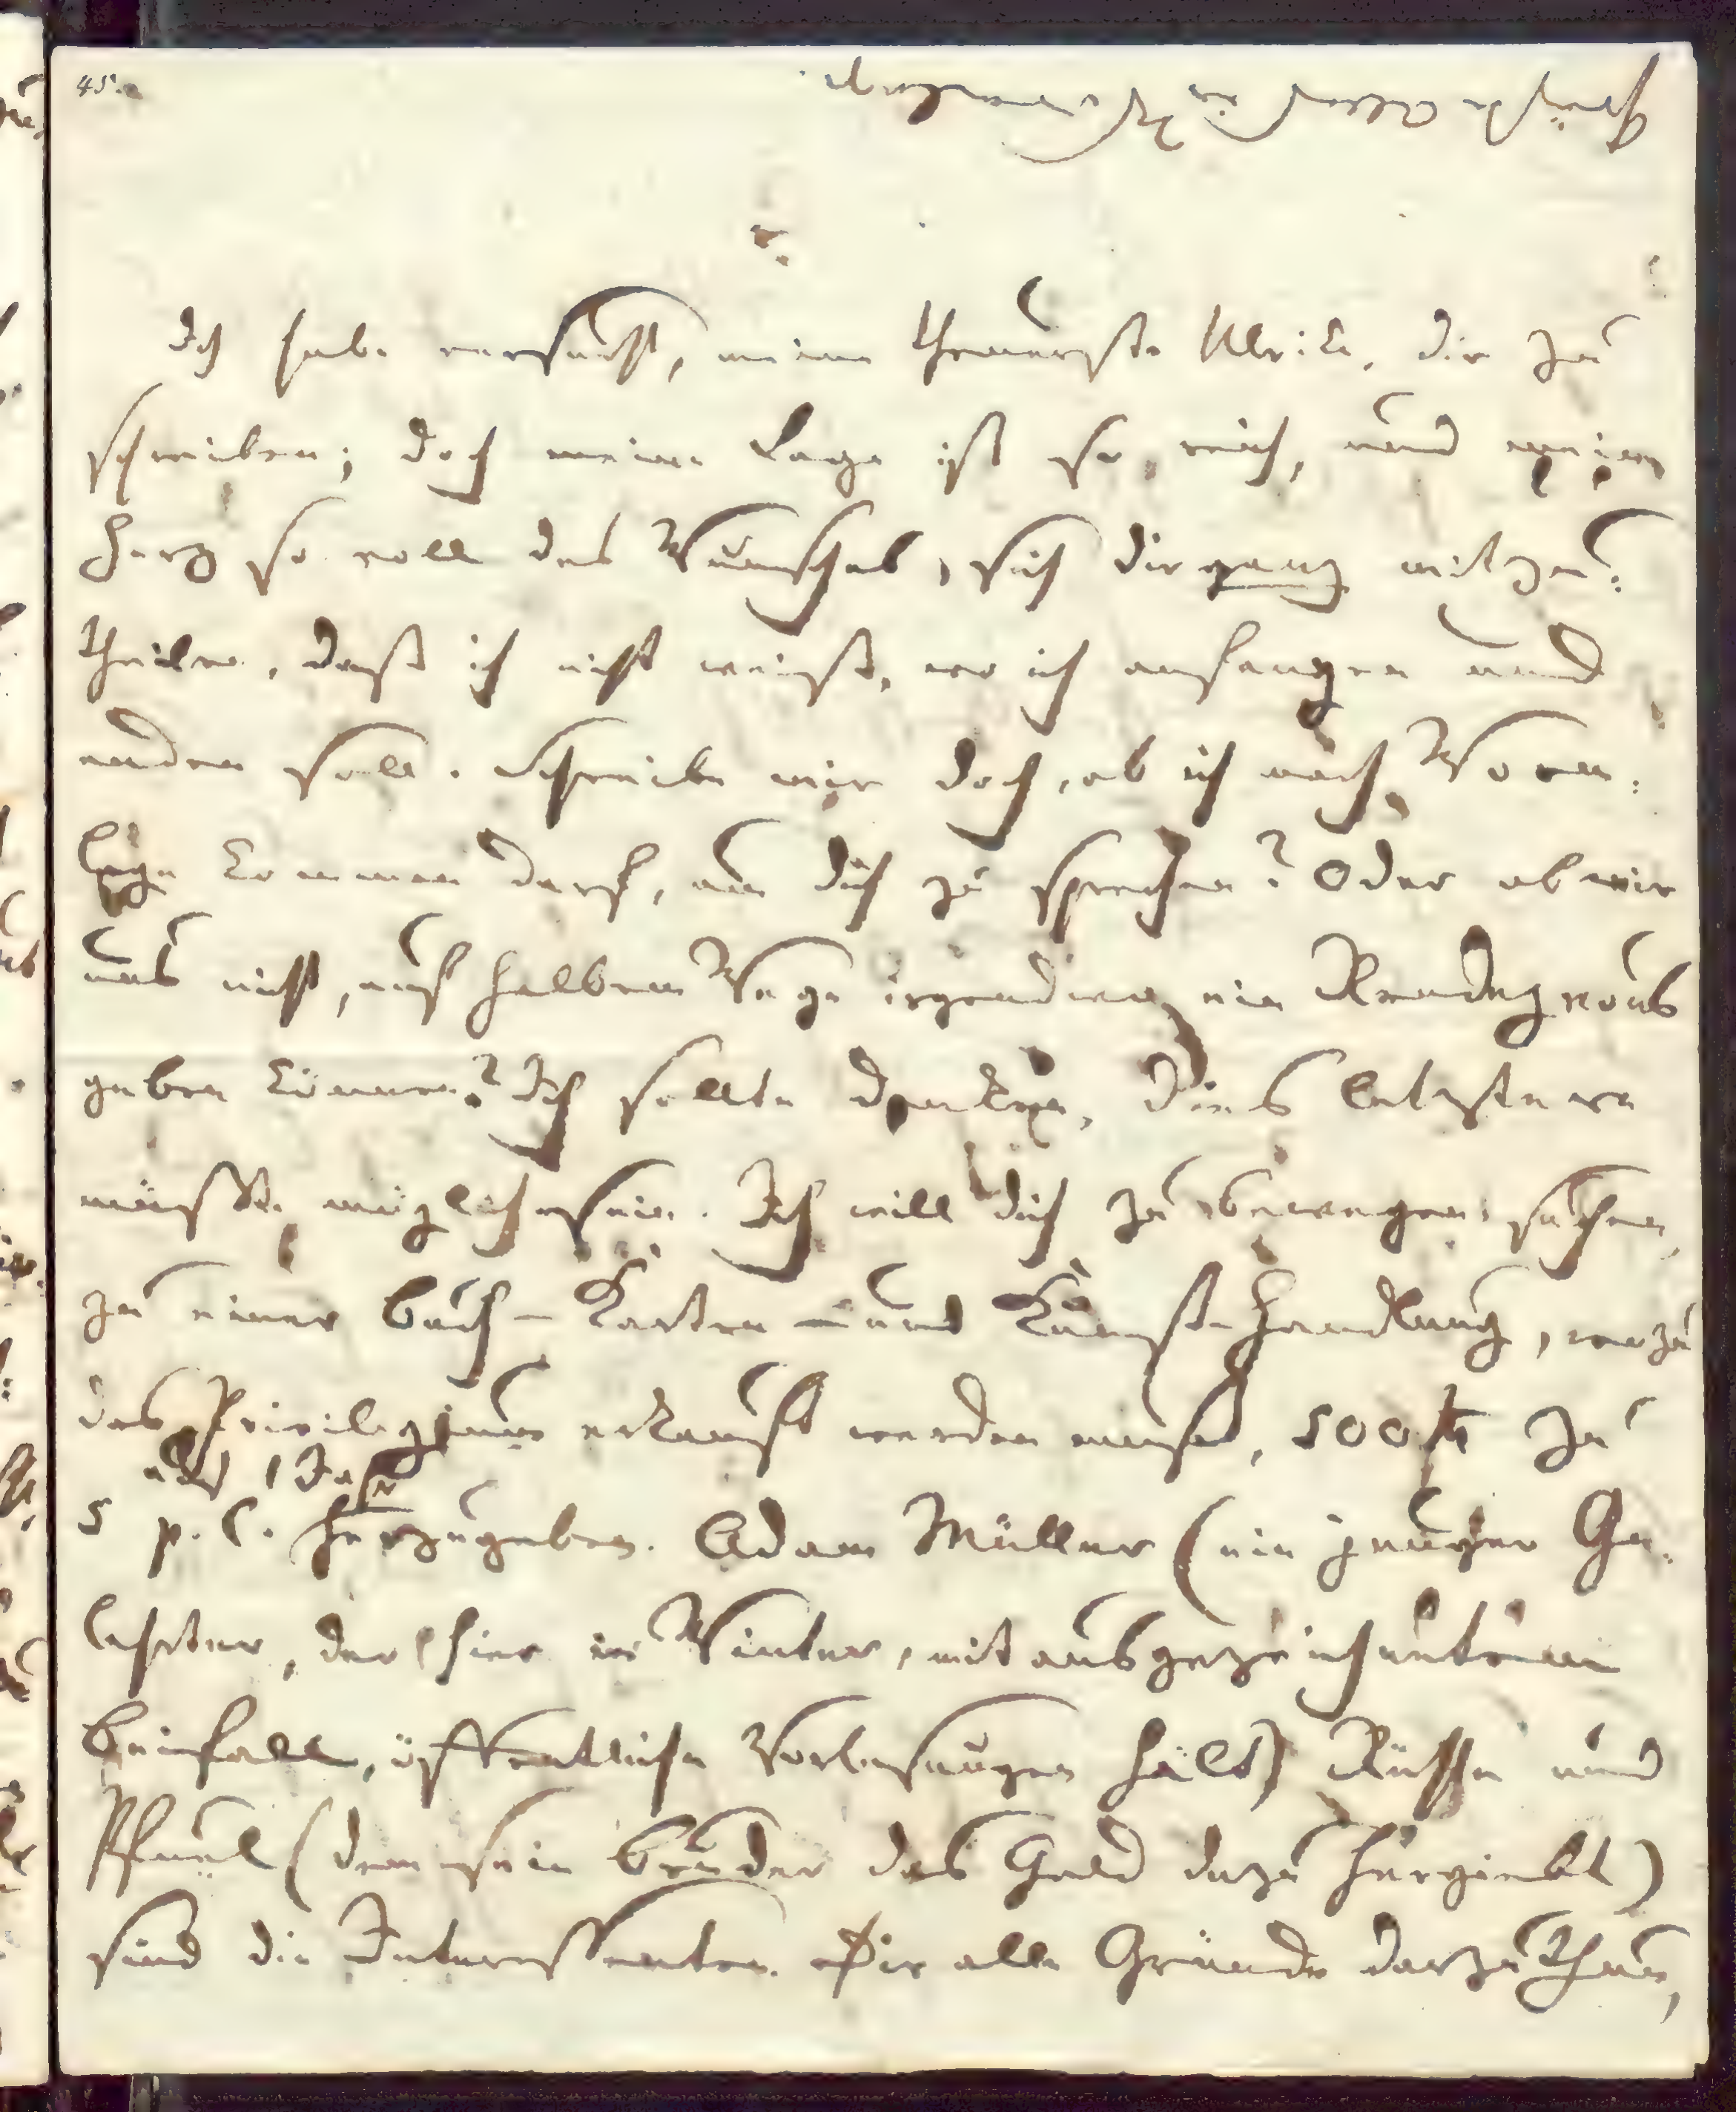 45.
Ich habe versucht, meine theuerste Ulrike, dir zu
schreiben; doch meine Lage ist so reich, und mein
Herz so voll des Wunsches, sich dir ganz mitzu:
theilen, daß ich nicht weiß, wo ich anfangen und
enden soll. Schreibe mir doch, ob ich nach Worm:
lage kommen darf, um dich zu sprechen? Oder ob wir
uns nicht, auf halbem Wege irgendwo, ein Rendezvous
geben können? Ich sollte denken, dies letztere
müßte möglich sein. Ich will dich zu bewegen suchen,
zu einer Buch- Karten- und Kunsthandlung, wozu
das Privilegium erkauft werden muß, 500 rth zu
auf 1 Jahr
5 p. C. herzugeben. Adam Müller (ein junger Ge:
lehrter, der hier im Winter, mit ausgezeichnetem
Beifall, öffentliche Vorlesungen hält) Rühle und
Pfuel (dem sein Bruder das Geld dazu hergiebt)
sind die Interessenten. Dir alle Gründe darzuthun,